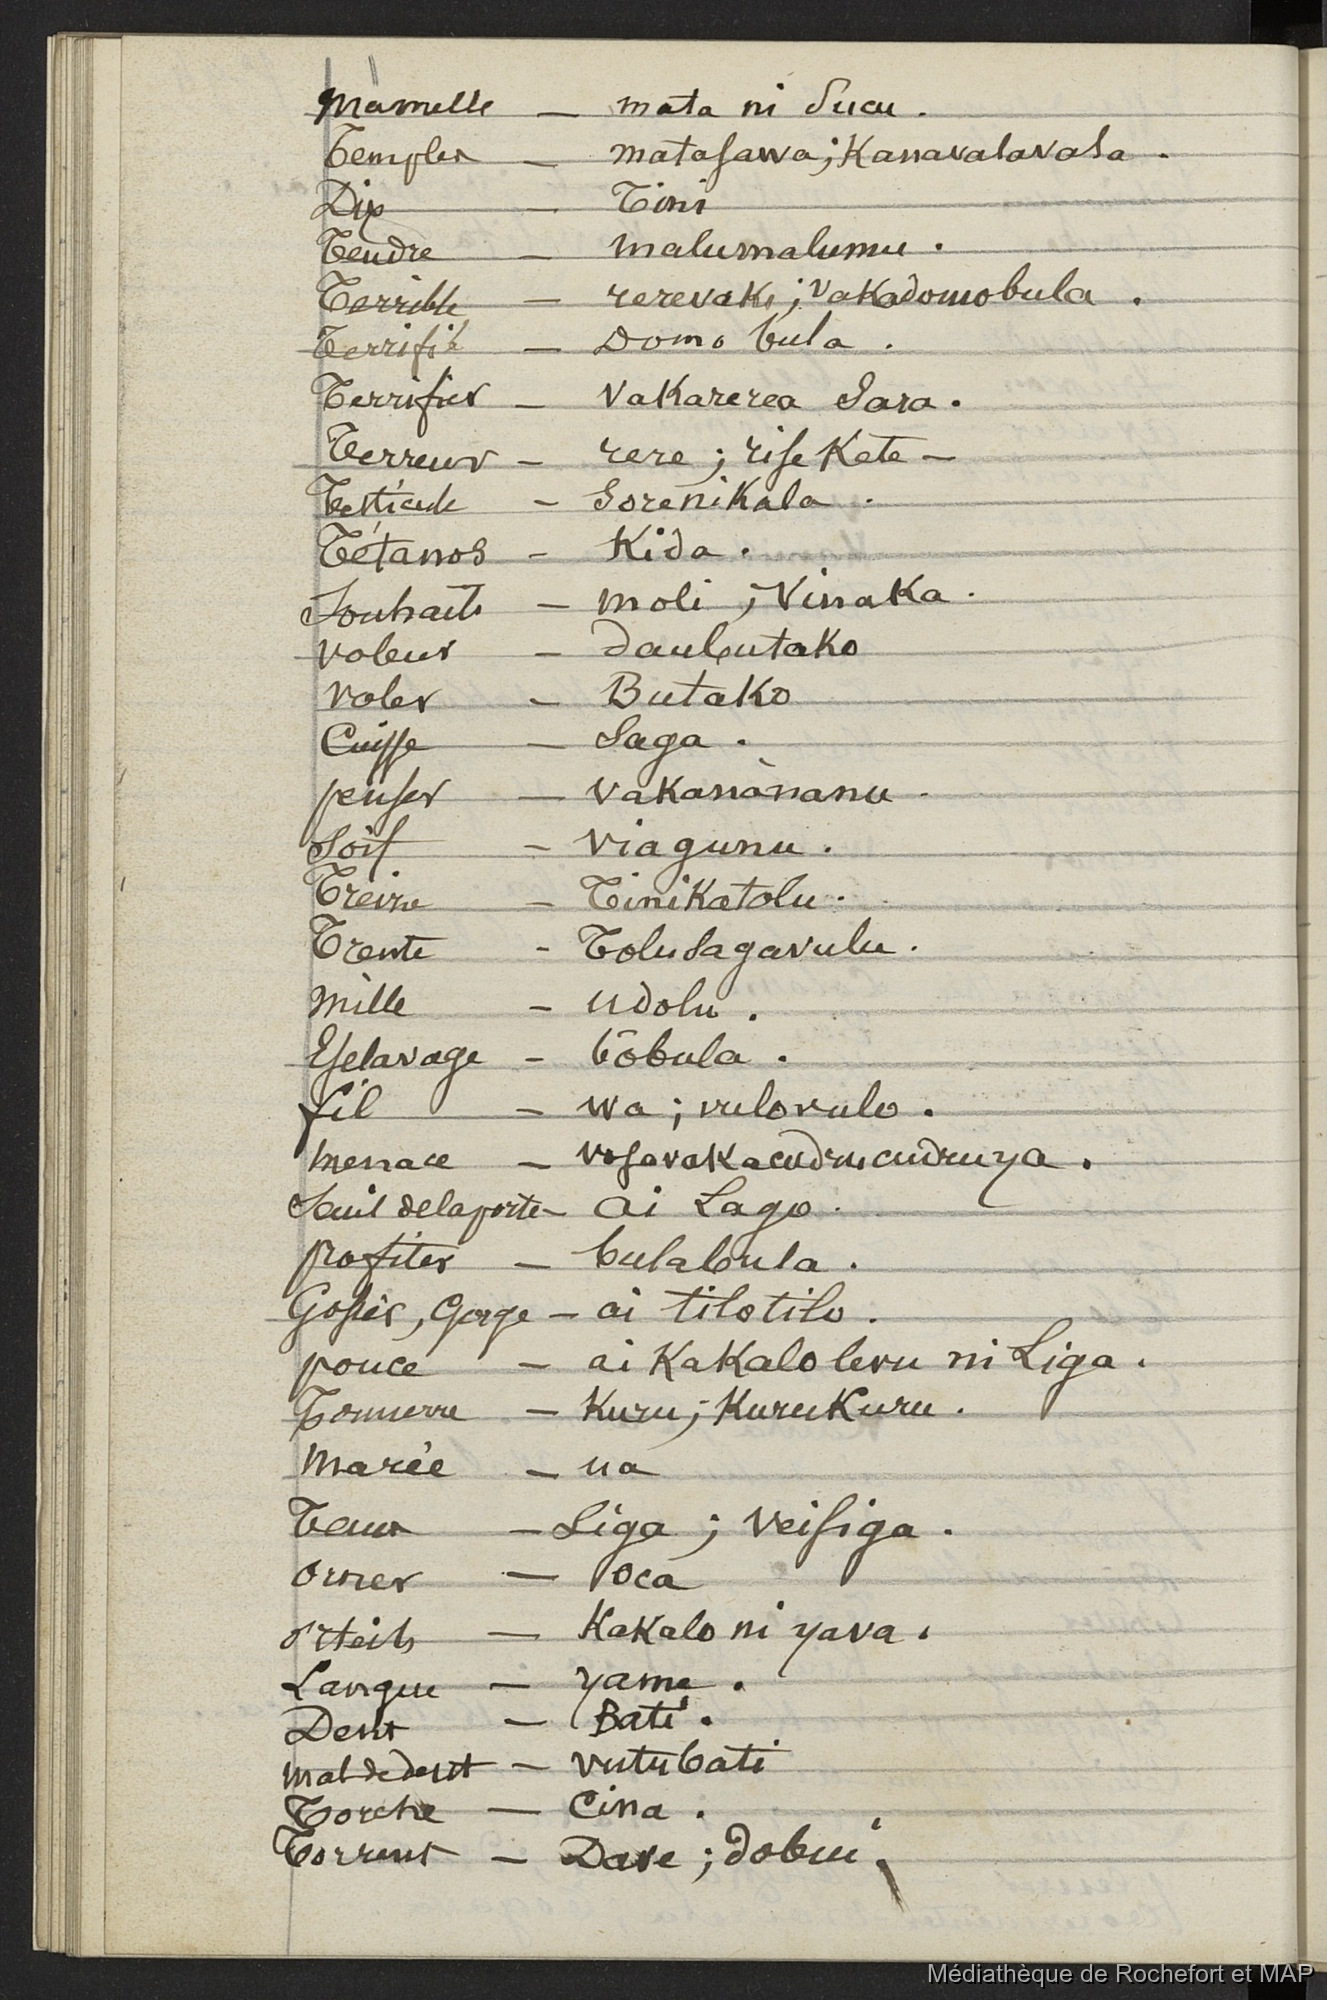 Mamelle — mata ni sucu.
Temples — matasawa; Kanavalavala.
Dix — Tini
Tendre — malumalumu.
Terrible — rerevaki; vakadomobula.
Terrifié — Domo bula.
Terrifier — Vakarerea sara.
Terreur — rere; rise Kete —
Testicule — Sorenikala.
Tétanos — Kida.
Souhaits — moli; Vinaka.
voleur — daubutako
voler — Butako
Cuisse — Saga.
penser — vakananànu.
Soif — viagunu.
Treize — Tinikatolu.
Trente — Tolusagavulu.
Mille — udolu.
Esclavage — bōbula.
fil — wa; vulovulo.
menace — vosavakacudrucudruya.
Seuil de la porte — ai Lago.
profiter — bulabula.
Gosier, Gorge — ai tilotilo.
pouce — ai Kakalo levu ni Liga.
Tonnerre — Kuru; KuruKuru.
Marée — ua
— Siga; Veisiga.
orner — oca
orteils — Kakalo ni yava.
Langue — yame.
Dent — Bati.
mal de dent — vutubati
Torche — Cina.
Torrent — Dave; dobui.
Médiathèque de Rochefort et MAP